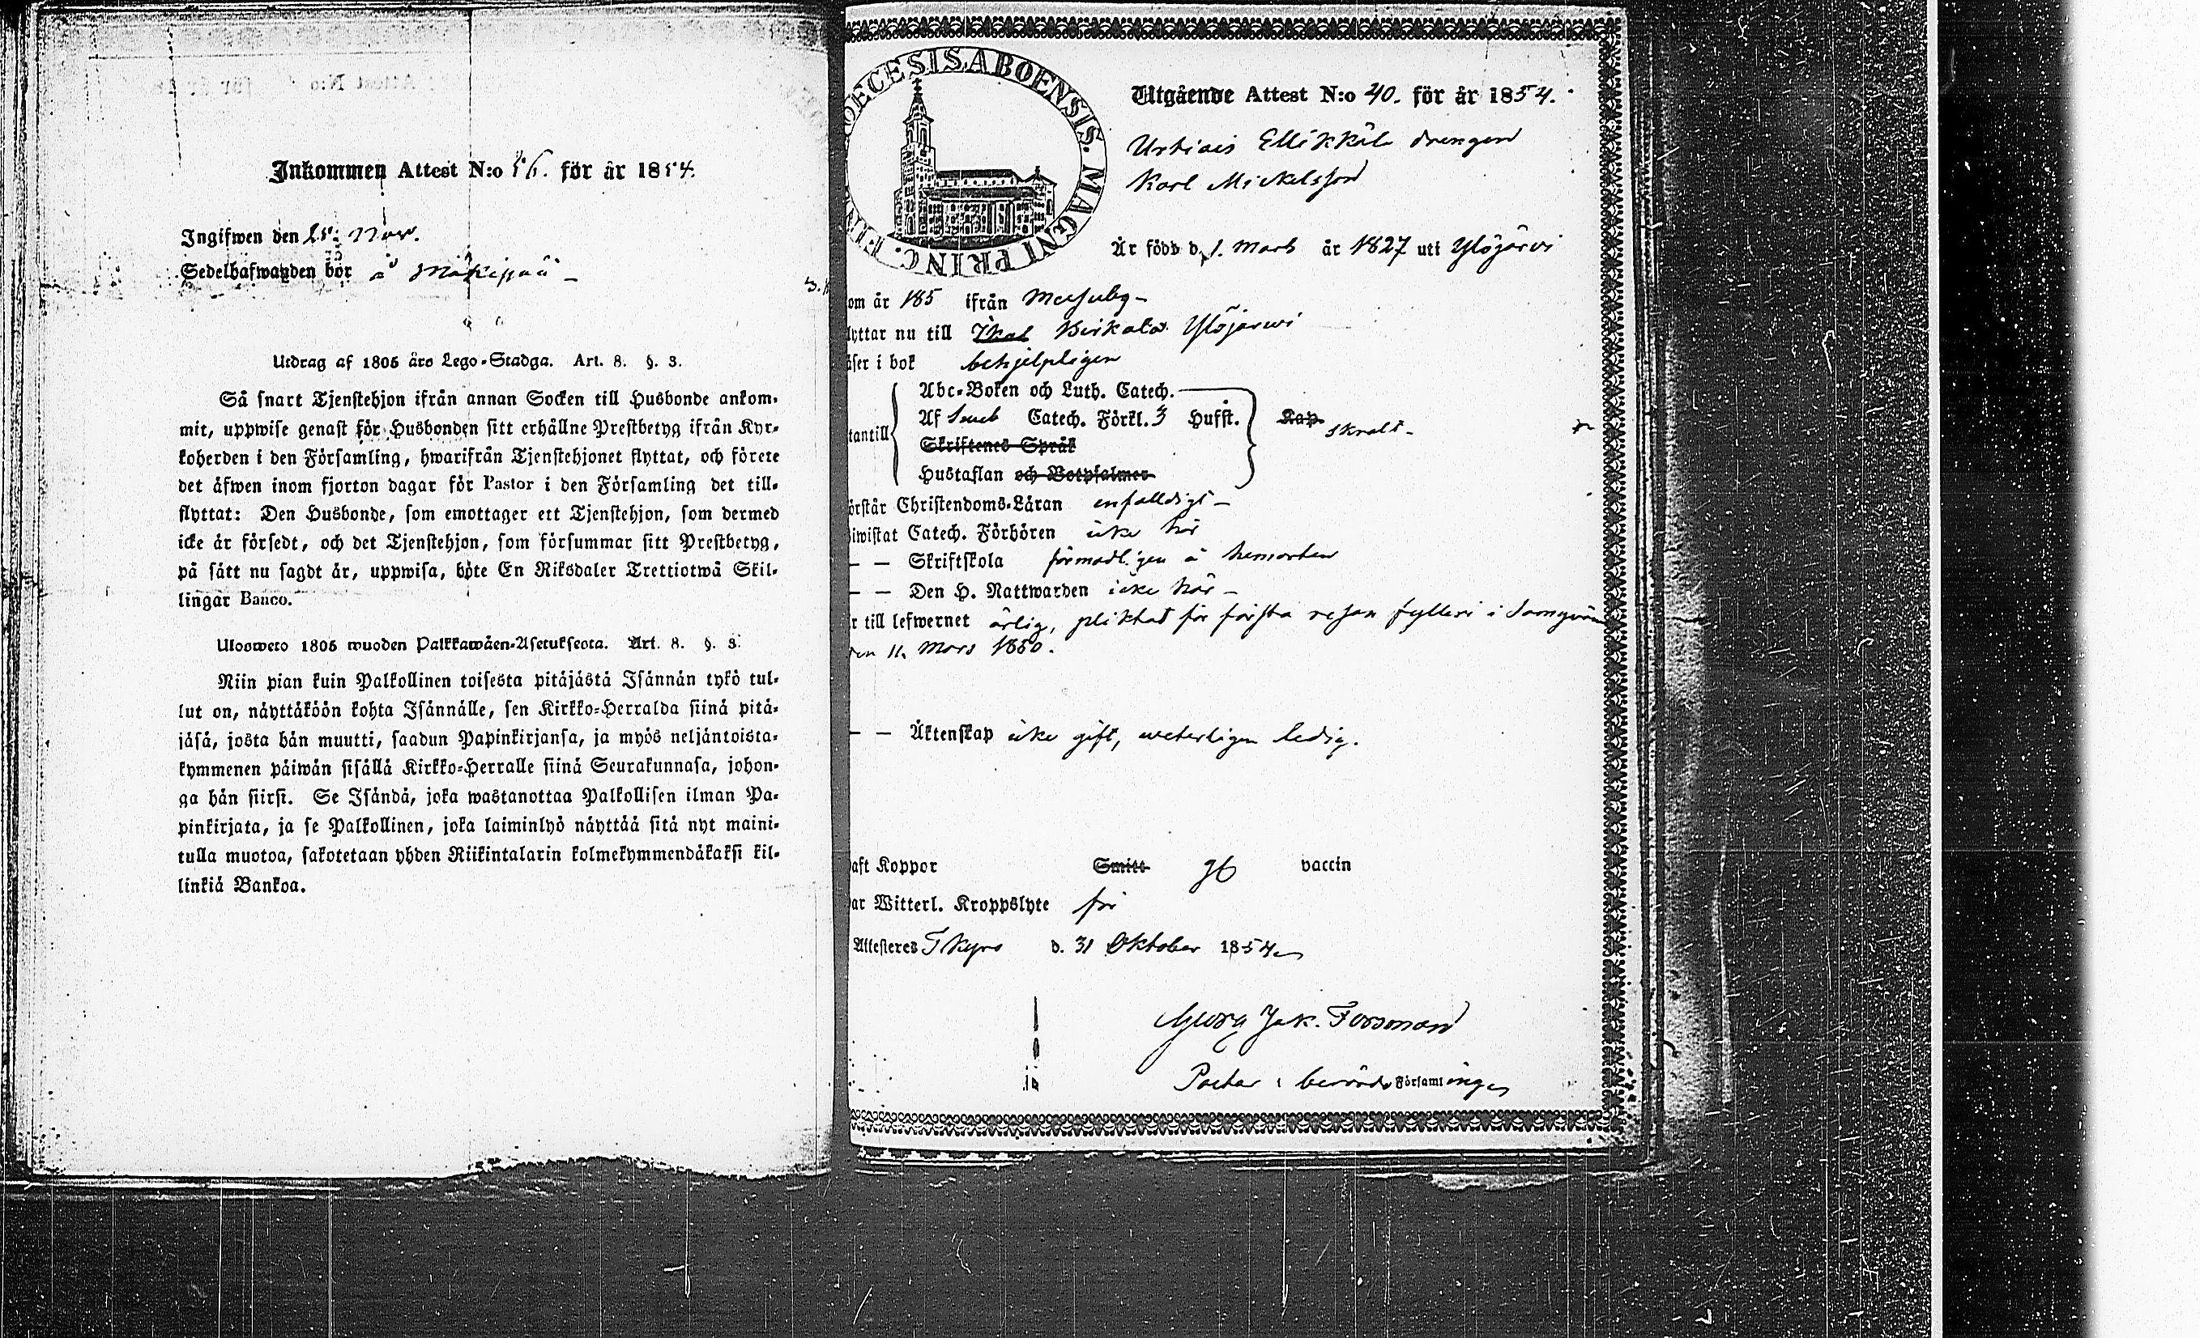 Inkommen Attest N:o 56. för år 1854.
Ingifwen den 25. Nov.
Sedelhafwanden bör å Mäkipää
Utdrag af 1805 års Lego-Stadga. Art. 8. §. 3.
Så snart Tjenstehjon ifrån annan Socken till Husbonde ankom-
mit, uppwise genast för Husbonden sitt erhållne Prestbetyg ifrån Kyr-
koherden i den Församling, hwarifrån Tjenstehjonet flyttat, och förete
det äfwen inom fjorton dagar för Pastor i den Församling det till-
flyttat: Den Husbonde, som emottager ett Tjenstehjon, som dermed
icke är försedt, och det Tjenstehjon, som försummar sitt Prestbetyg,
på sätt nu sagdt är, uppwisa, böte En Riksdaler Trettiotwå Skil-
lingar Banco.
Uloswето 1805 wuoden Palkkawäen-Asetuksesta. Art. 8. §. 3.
Niin pian kuin Palkollinen toisesta pitäjästä Isännän tykö tul-
lut on, näyttäköön kohta Isännälle, sen Kirkko-Herralda siinä pitä-
jäsä, josta hän muutti, saadun Papinkirjansa, ja myös neljäntoista-
kymmenen päiwän sisällä Kirkko-Herralle siinä Seurakunnasa, johon-
ga hän siirsi. Se Isändä, joka wastanottaa Palkollisen ilman Pa-
pinkirjata, ja se Palkollinen, joka laiminlyö näyttää sitä nyt maini-
tulla muotoa, sakotetaan yhden Riikintalarin kolmekymmendäkaksi kil-
linkiä Bankoa.
DIOECESIS ABOENSIS. MAGNI PRINC. FINL
Utgående Attest N:o 40. för år 1854.
Ellikkälä drengen
Karl Mickelsson
Är född d. 1. Mars år 1827 uti Ylöjärvi
om år 185 ifrån
lyttar nu till Ikal Birkala Ylöjärwi
äser i bok behjelpligen
Abc-Boken och Luth. Catech.
tantill Af Catech. Förkl. 3 Hufst. Kap. skralt
Skriftenes Språk
Hustaflan och Botpsalmer
örstår Christendoms-Läran enfalldigt
iwistat Catech. Förhören icke här
— — Skriftskola förmodligen å hemorten
— — Den H. Nattwarden icke här
r till lefwernet ärlig, pliktat för första resan fylleri i
den 11. Mars 1850.
— — Äktenskap icke gift, weterligen ledig.
aft Koppor Smitt vaccin
ar Witterl. Kroppslyte fri
Attesteres T Kyro d. 31 Oktober 1854
Georg Jak. Forsman
Pastor i berörde Församlingen